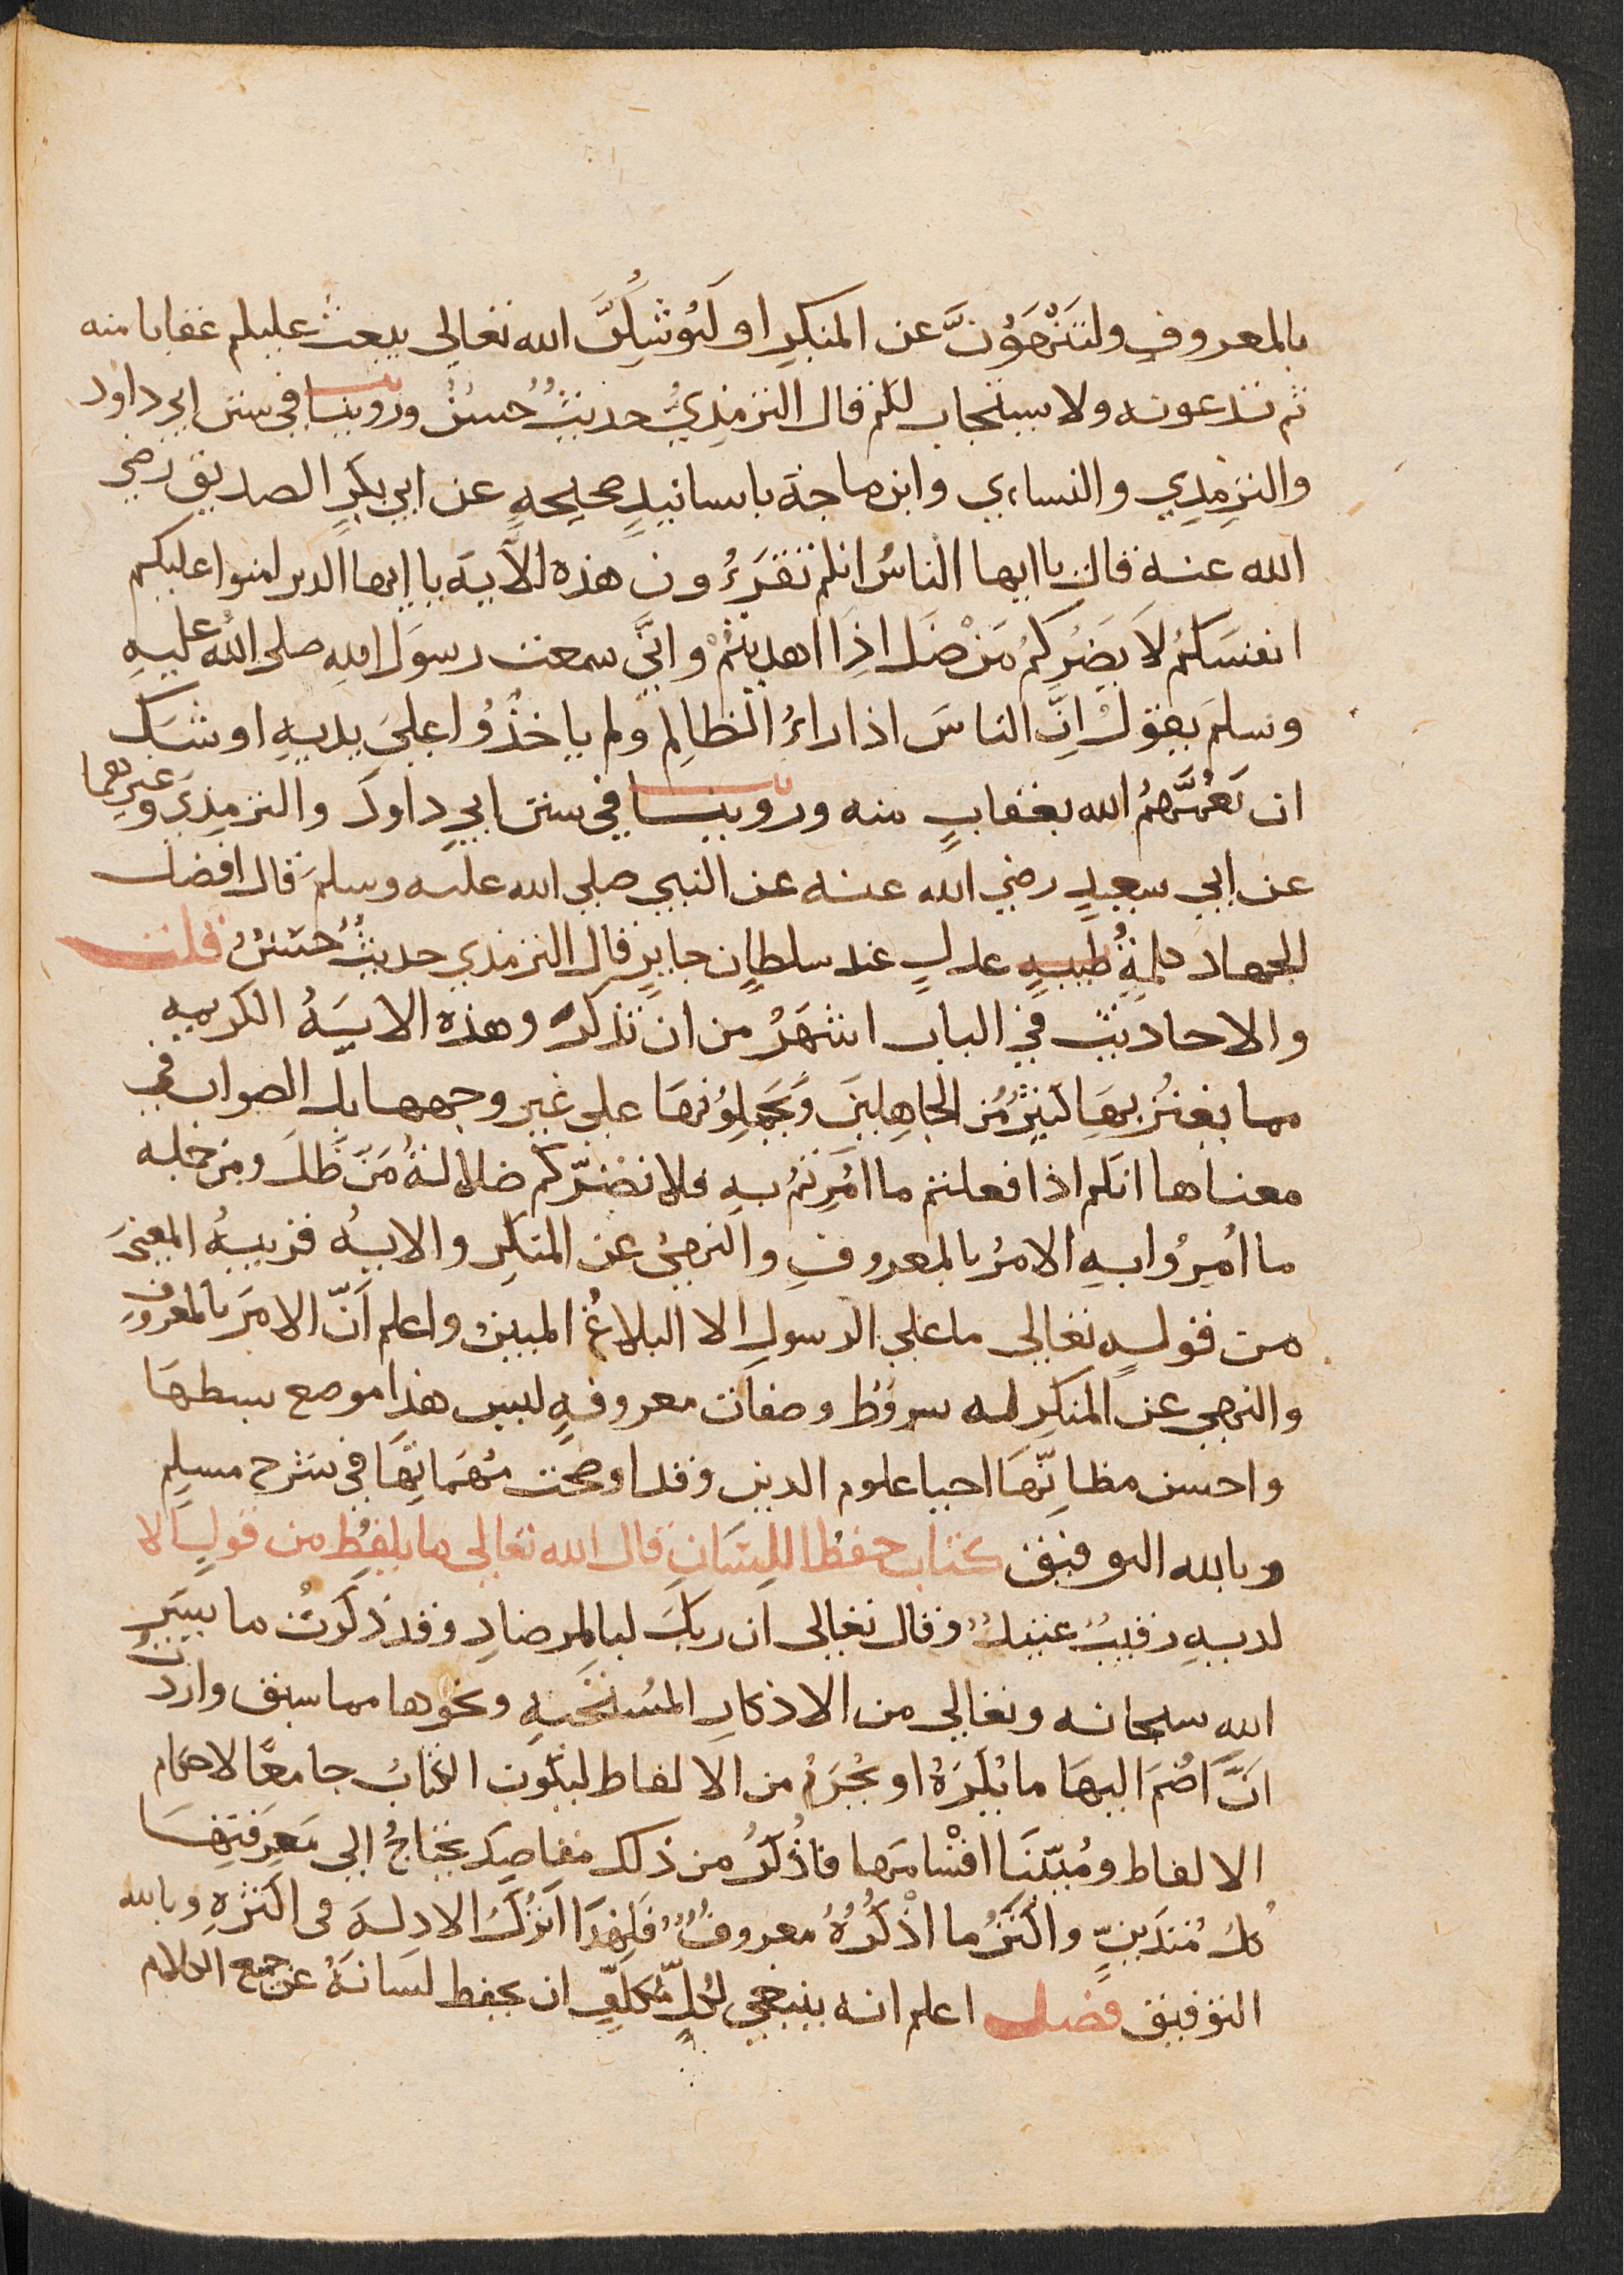 بالمعروف ولتَنْهَوُنَّ عن المنكرِ او لَيُوشِكَنَّ الله تعالى يبعث عليكم عقابا منه
ثم تدعونه ولا يستجاب لكم قال الترمذيُّ حديثٌ حسنٌ وروينا في سنن ابي داود
والترمذي والنساءي وابن ماجة باسانيدٍ صحيحةٍ عن ابي بكرٍ الصديق رضي
الله عنه قال يا ايها الناسُ انكم تقرَءُون هذه الآية يا ايها الذين امنوا عليكم
انفسَكُم لَا يَضُركُم مَنْ ضَل اذَا اهديتُمْ وانّي سمعت رسوَل اللهِ صلى اللهُ عليهِ
وسلمَ يقول اِنَّ الناسَ اذا راءُ الظالِم ولم ياخذُوا عليَ يديهِ اوشَك
ان يَعُمَّهمُ الله بعقابٍ منه وروينا في سنن ابي داودَ والترمِذيَ وغيرِهما
عن ابي سعيدٍ رضي الله عنه عن النبي صلي الله عليه وسلمَ قال افضل
الجهاد كلمةٍ طيبةٍ عدلٍ عند سلطانٍ جايرٍ قال الترمذي حديثٌ حسَنٌ قلت
والاحاديث في الباب اشهَرُ من ان تذكر وهذه الايَةُ الكريمه
مما يغترُ بهَا كثيرٌ مُن الجاهِلينَ وَيَحْمِلوُنهَا على غير وجهها بل الصواب في
معناها انكم اذا فعلتم ما اُمِرتمُ بهِ فلا تضرّكم ضلالةُ مَن ظَلَ ومن جمله
ما اُمِرُوا بهِ الامرُ بالمعروفِ والنهيُ عن المنكرِ والايهُ قريبهُ المعني
من قوله تعالى ما علي الرسول الا البلاغُ المبين واعلم اَنّ الامرَ بالمعروفِ
والنهي عن المنكرِ له شروُط وصفات معروفةٍ ليس هذا موضع بسطهَا
واحسن مظانِّهَا احيا علوم الدين وقد اوضحت مُهَمَاتِهَا في شرح مسلِم
وبالله التوفيق كتاب حفظ اللِسَانِ قال الله تعالى ما يلفظ من قولٍ الا
لديهِ رقيبٌ عتيدٌ وقال تعالى ان ربكَ لبالمِرصادِ وقد ذكَرتُ ما يسَرِ
اللهِ سبحانه وتعالي من الاذكارِ المُستحَبةِ ونحوها مما سبق واردتُ
انَّ اضُمَ اليهَا ما يُكَرهُ او يُحْرَمُ من الالفاط ليكون الكتابُ جامعًا لاحكام
الالفاط ومُبيّنَا اقْسَامهَا فاذكرُ من ذلك مقاصِدَ يحتاجُ الي مَعرِفَتِهَا
كل مُتدَينٍّ واكثرُ ما اذْكُرُهُ معروفٌ فَلِهَذَا اترُكُ الادلة في اكثرهِ وبالله
التوفيق فصل اعلم انه ينبغي لكلٍّ مُكلّفٍ ان يحفط لسَانَهُ عن جميع الكلام